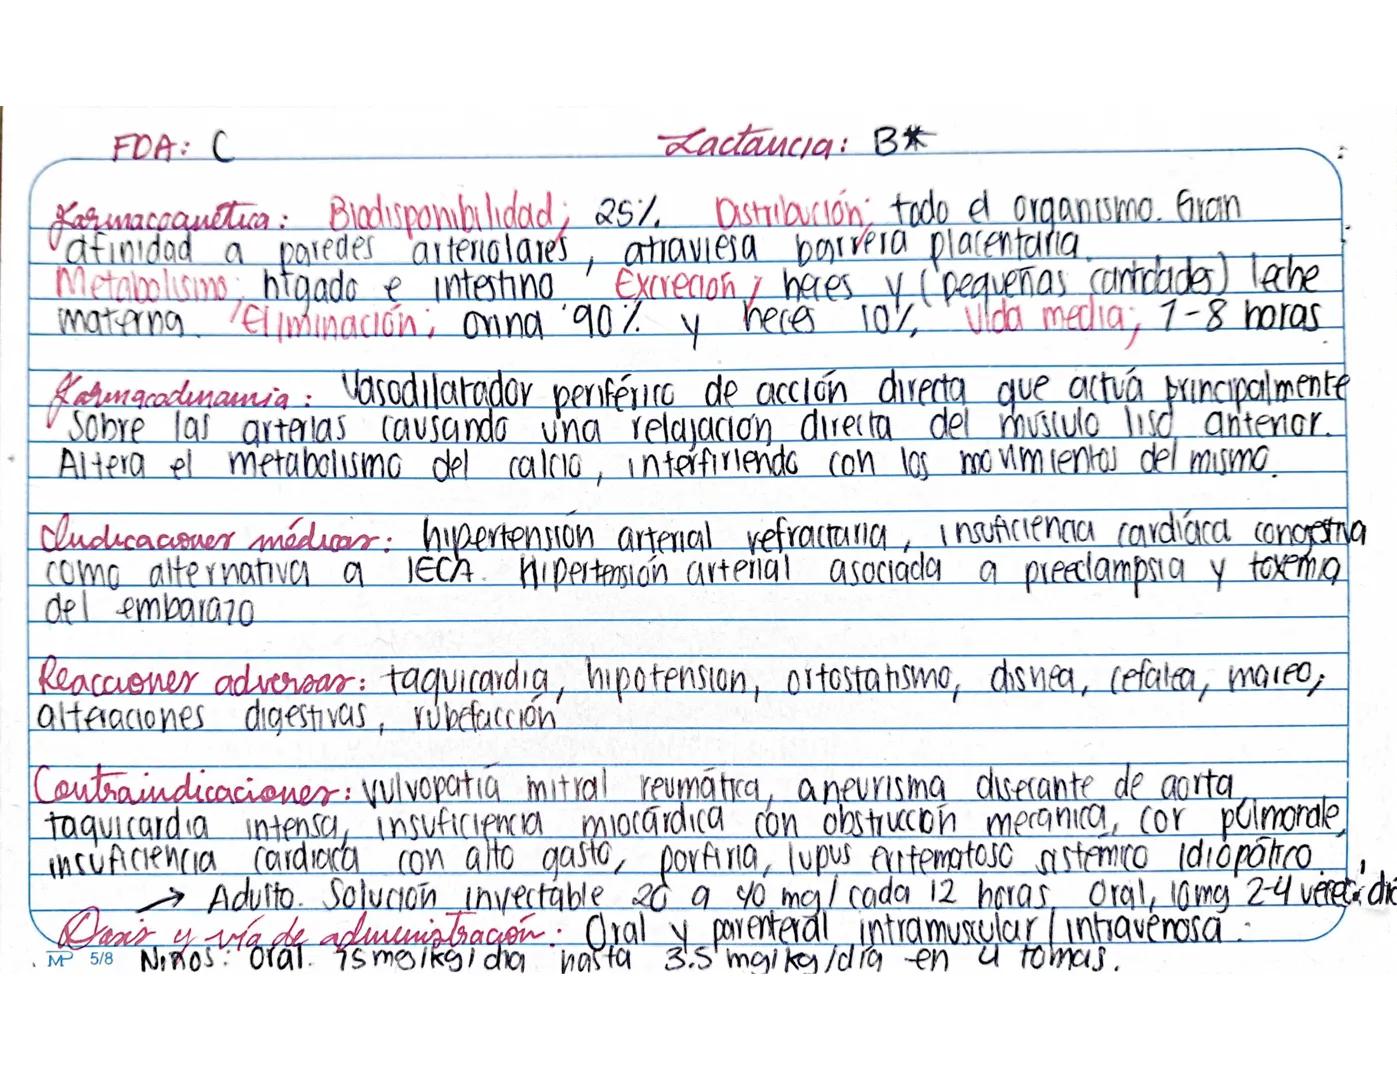 FDA: C Lactancia: B*
Farmacocinética: Biodisponibilidad; 25% Distribución; todo el organismo. Gran
afinidad a paredes arteriolares, atraviesa barrera placentaria.
Metabolismo; hígado e intestino Excreción; heces y (pequeñas cantidades) leche
materna. Eliminación; orina 90% y heces 10%, Vida media; 7-8 horas
Farmacodinamia: Vasodilatador periférico de acción directa que actuá principalmente
sobre las arterias causando una relajación directa del músculo liso anterior.
Altera el metabolismo del calcio, interfiriendo con los movimientos del mismo.
Indicaciones médicas: hipertensión arterial refractaria, insuficiencia cardíaca congestiva
como alternativa a IECA. Hipertensión arterial asociada a preeclampsia y toxemia
del embarazo
Reacciones adversas: taquicardia, hipotensión, ortostatismo, disnea, cefalea, mareo,
alteraciones digestivas, rubefacción
Contraindicaciones: vulvopatía mitral reumática, aneurisma disecante de aorta
taquicardia intensa, insuficiencia miocárdica con obstrucción mecánica, cor pulmonale,
insuficiencia cardiaca con alto gasto, porfiria, lupus eritematoso sistémico idiopático
→ Adulto. Solución inyectable 20 a 40 mg/cada 12 horas. Oral, 10mg 2-4
Dosis y vía de administración: Oral y parenteral intramuscular/intravenosa.
MP 5/8 Niños: Oral. hasta 3.5 mg/kg/día en 4 tomas.